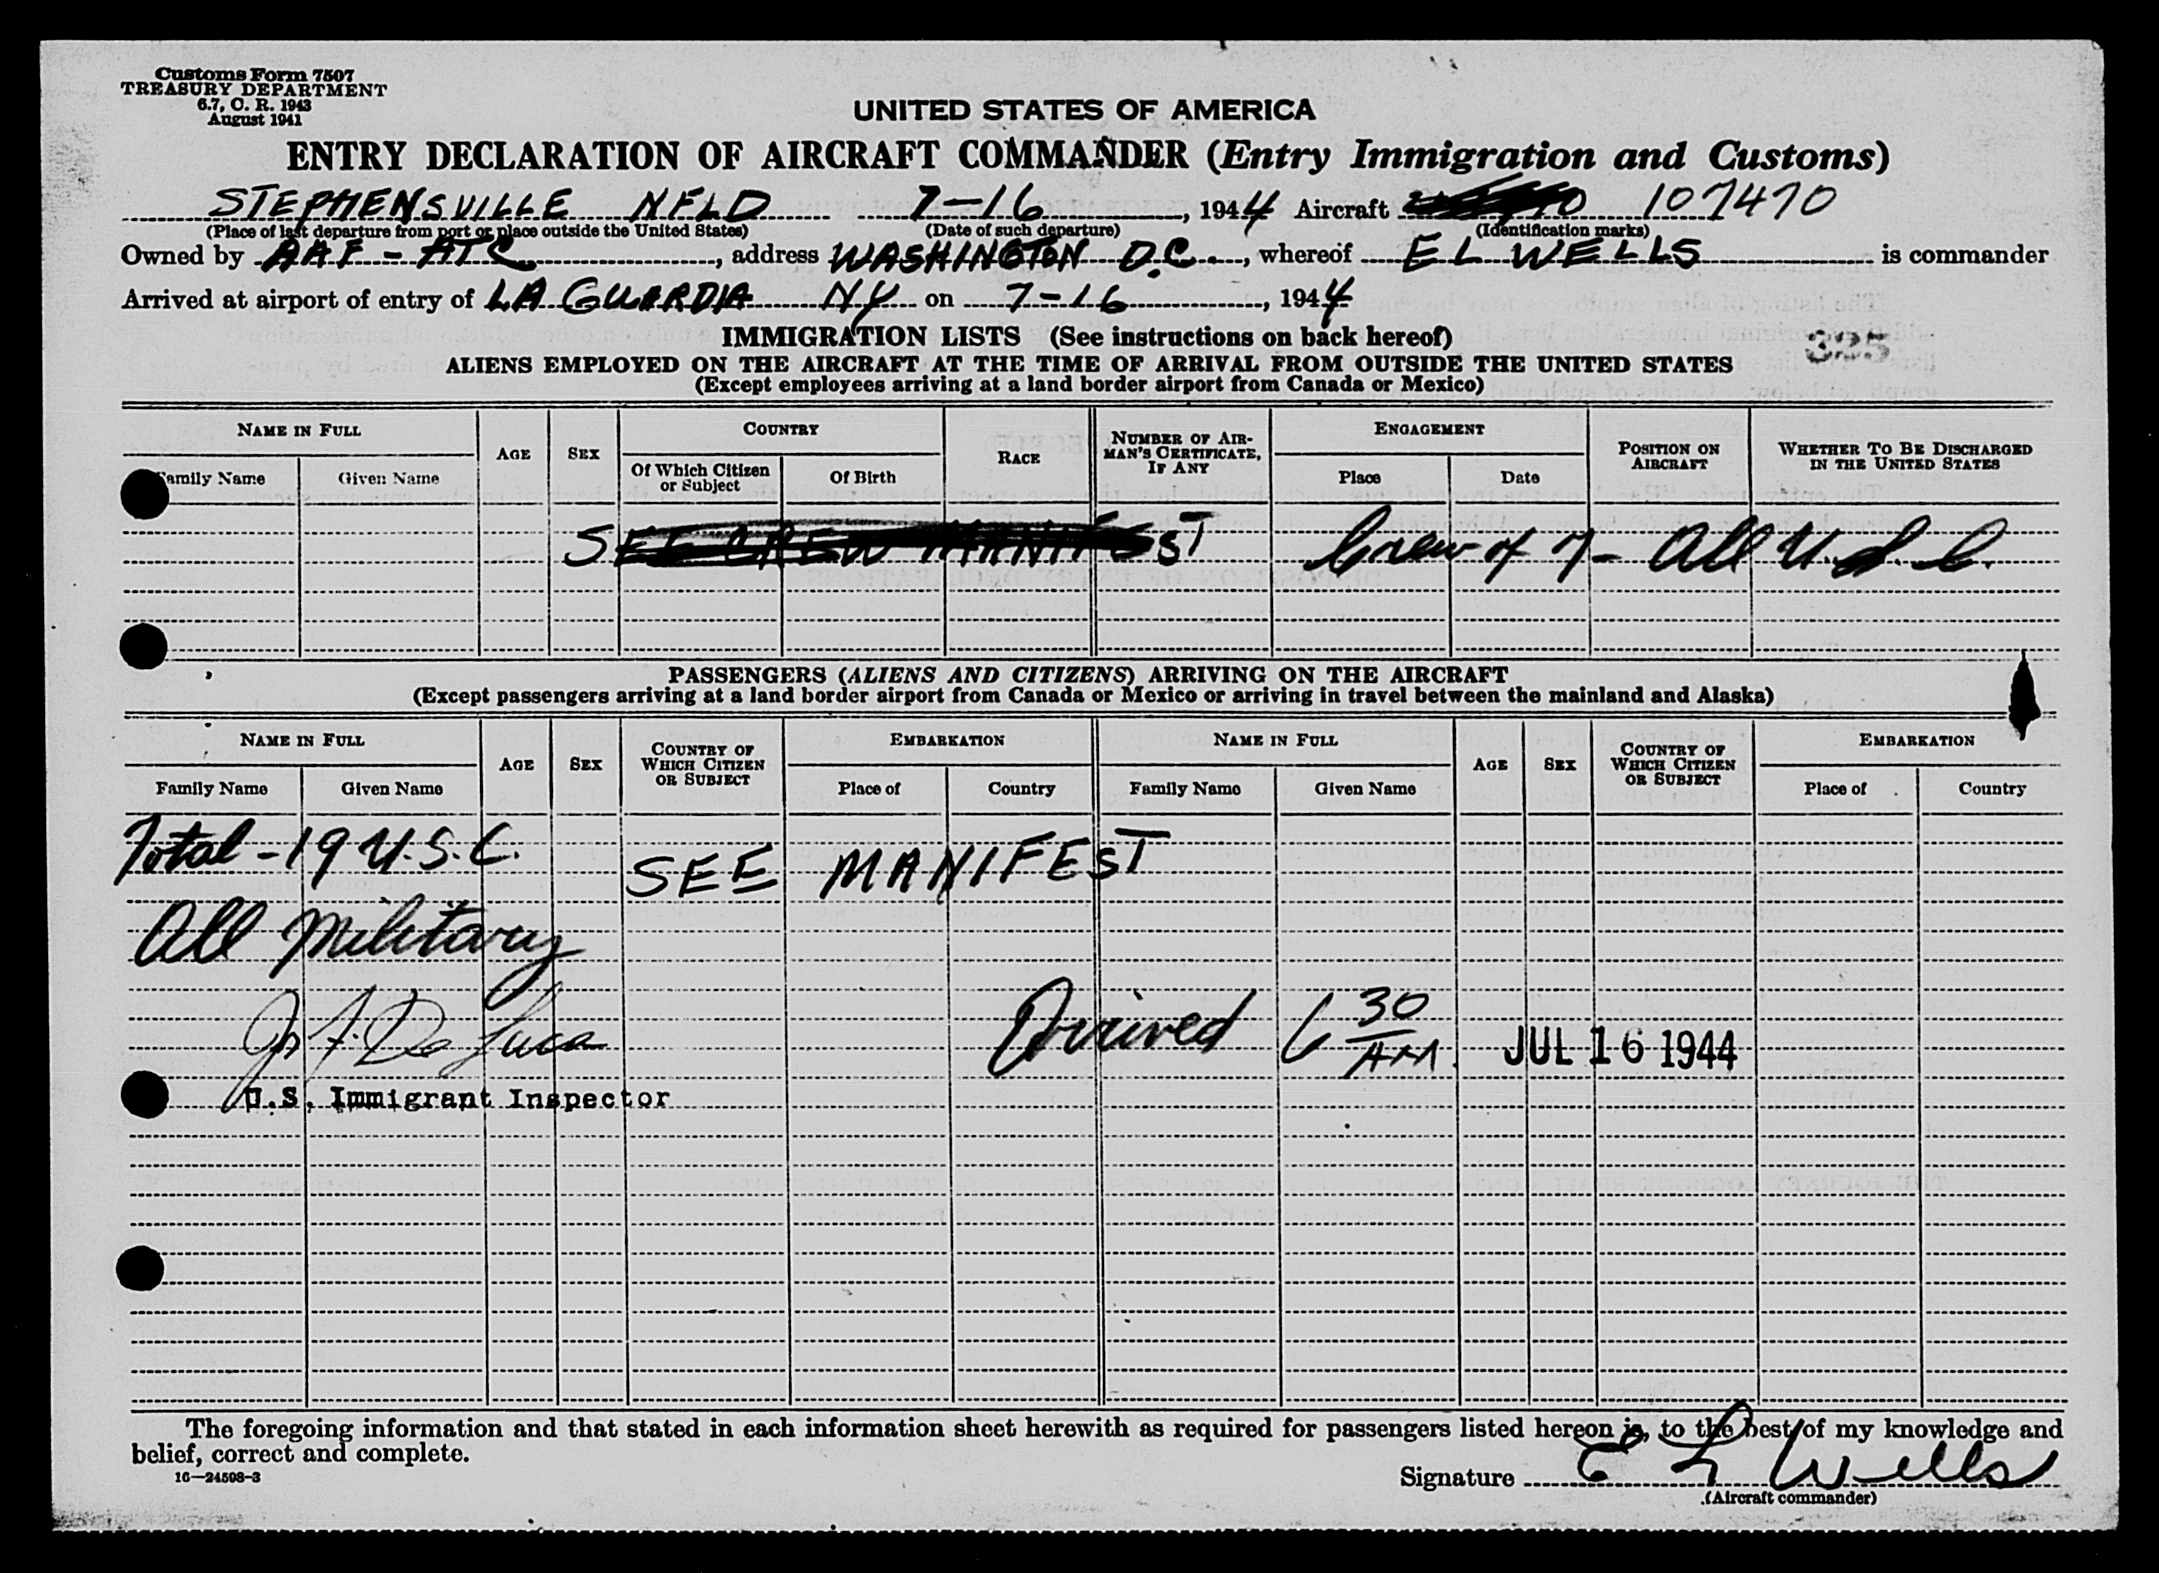 Customs Form 7507
TREASURY DEPARTMENT
6.7, C. R. 1943
August 1941
UNITED STATES OF AMERICA
ENTRY DECLARATION OF AIRCRAFT COMMANDER (Entry Immigration and Customs)
STEPHENSVILLE NFLD 7-16, 1944 Aircraft 107470
(Place of last departure from port or place outside the United States) (Date of such departure) (Identification marks)
Owned by AAF - ATC, address WASHINGTON D.C., whereof E L WELLS is commander
Arrived at airport of entry of LA GUARDIA NY on 7-16, 1944
IMMIGRATION LISTS (See instructions on back hereof)
325
ALIENS EMPLOYED ON THE AIRCRAFT AT THE TIME OF ARRIVAL FROM OUTSIDE THE UNITED STATES
(Except employees arriving at a land border airport from Canada or Mexico)
NAME IN FULL AGE SEX COUNTRY RACE NUMBER OF AIRMAN'S CERTIFICATE, IF ANY ENGAGEMENT POSITION ON AIRCRAFT WHETHER TO BE DISCHARGED IN THE UNITED STATES
Family Name Given Name Of Which Citizen or Subject Of Birth Place Date
SEE CREW MANIFEST Crew of 7 - All U.S.C.
PASSENGERS (ALIENS AND CITIZENS) ARRIVING ON THE AIRCRAFT
(Except passengers arriving at a land border airport from Canada or Mexico or arriving in travel between the mainland and Alaska)
NAME IN FULL AGE SEX COUNTRY OF WHICH CITIZEN OR SUBJECT EMBARKATION NAME IN FULL AGE SEX COUNTRY OF WHICH CITIZEN OR SUBJECT EMBARKATION
Family Name Given Name Place of Country Family Name Given Name Place of Country
Total - 19 U.S.C. SEE MANIFEST
All Military
Jos F. De Luca Arrived 6 30 AM. JUL 16 1944
U.S. Immigrant Inspector
The foregoing information and that stated in each information sheet herewith as required for passengers listed hereon is, to the best of my knowledge and
belief, correct and complete.
16—24598-3
Signature E L Wells
(Aircraft commander)